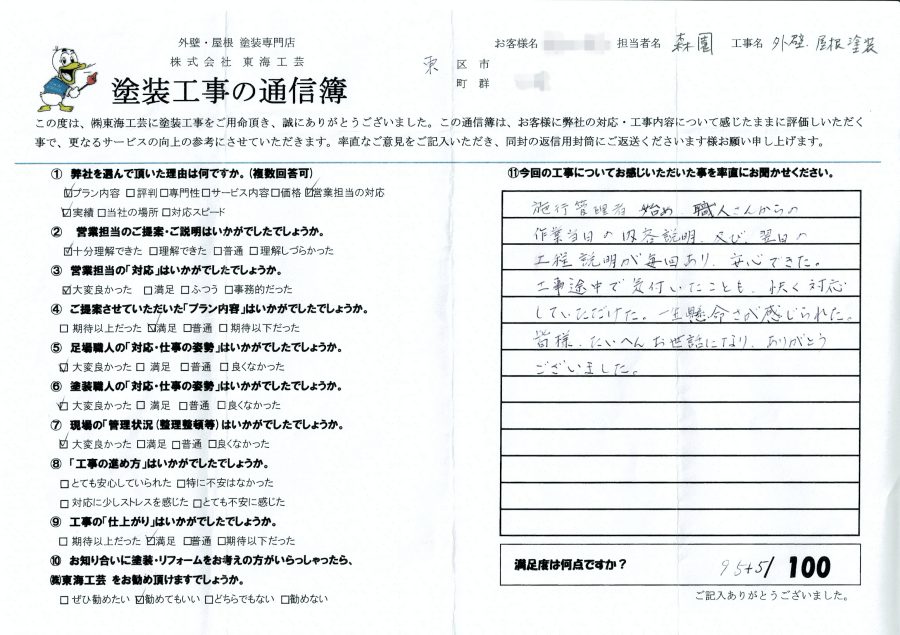 外壁・屋根 塗装専門店
株式会社 東海工芸
塗装工事の通信簿
東 区 市
町 群
お客様名 担当者名 森園 工事名 外壁.屋根塗装
この度は、㈱東海工芸に塗装工事をご用命頂き、誠にありがとうございました。この通信簿は、お客様に弊社の対応・工事内容について感じたままに評価しいただく
事で、更なるサービスの向上の参考にさせていただきます。率直なご意見をご記入いただき、同封の返信用封筒にご返送くださいます様お願い申し上げます。
① 弊社を選んで頂いた理由は何ですか。(複数回答可)
☑プラン内容 □評判 □専門性 □サービス内容 □価格 ☑営業担当の対応
☑実績 □当社の場所 □対応スピード
② 営業担当のご提案・ご説明はいかがでしたでしょうか。
☑十分理解できた □理解できた □普通 □理解しづらかった
③ 営業担当の「対応」はいかがでしたでしょうか。
☑大変良かった □満足 □ふつう □事務的だった
④ ご提案させていただいた「プラン内容」はいかがでしたでしょうか。
□期待以上だった ☑満足 □普通 □期待以下だった
⑤ 足場職人の「対応・仕事の姿勢」はいかがでしたでしょうか。
☑大変良かった □満足 □普通 □良くなかった
⑥ 塗装職人の「対応・仕事の姿勢」はいかがでしたでしょうか。
☑大変良かった □満足 □普通 □良くなかった
⑦ 現場の「管理状況(整理整頓等)はいかがでしたでしょうか。
☑大変良かった □満足 □普通 □良くなかった
⑧ 「工事の進め方」はいかがでしたでしょうか。
□とても安心していられた □特に不安はなかった
□対応に少しストレスを感じた □とても不安に感じた
⑨ 工事の「仕上がり」はいかがでしたでしょうか。
□期待以上だった ☑満足 □普通 □期待以下だった
⑩ お知り合いに塗装・リフォームをお考えの方がいらっしゃったら、
㈱東海工芸 をお勧め頂けますでしょうか。
□ぜひ勧めたい ☑勧めてもいい □どちらでもない □勧めない
⑪今回の工事についてお感じいただいた事を率直にお聞かせください。
施行管理者 始め、職人さんからの
作業当日の内容説明、及び、翌日の
工程説明が毎回あり、安心できた。
工事途中で気付いたことも、快く対応
していただけた。一生懸命さが感じられた。
皆様、たいへんお世話になり、ありがとう
ございました。
満足度は何点ですか? 95+5/ 100
ご記入ありがとうございました。